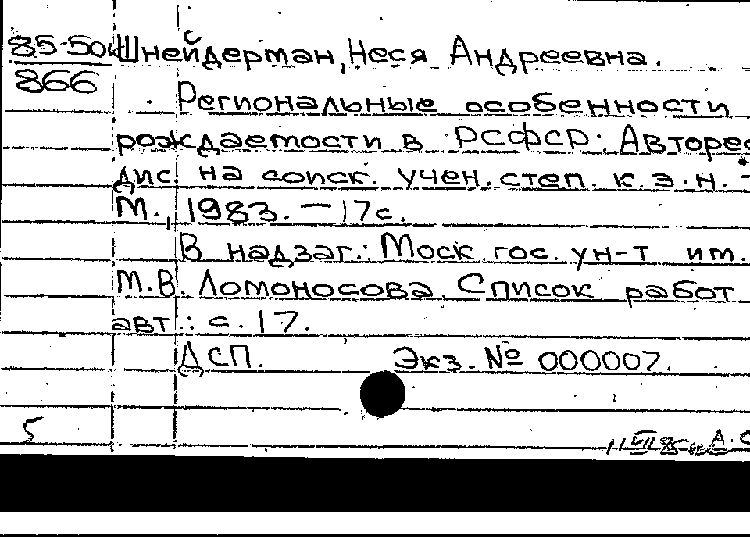 85-504 Шнейдерман, Неся Андреевна.
866
Региональные особенности
рождаемости в РСФСР: Авторе
дис. на соиск. учен. степ. к.э.н. -
М., 1983. - 17с.
В надзаг.: Моск. гос. ун-т им.
М.В. Ломоносова. Список работ
авт.: с. 17.
ДСП. Экз. № 000007.
5